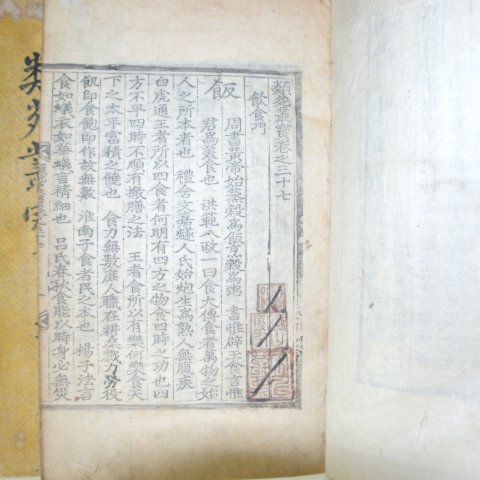 類苑叢寶卷之三十七
飮食門
飯
周書黃帝始蒸穀爲飯烹穀爲粥 書惟辟玉食言惟
君爲美食也 洪範八政一曰食大傳食者萬物之始
人之所本者也 禮含文嘉燧人氏始炮生爲熟人無腹疾
白虎通王者所以四食者何明有四方之物食四時之功也四
方不平四時不順有撤膳之法 王者食所以有樂何樂食天
下之太平富積之饒也 食力無數庶人職在耕
力勞役
飢即食飽即作故無數 淮南子食者民之本也 揚子法言
食如蟻衣如華蟻言精細也 呂氏春秋食能以時身必無災
類苑叢寶